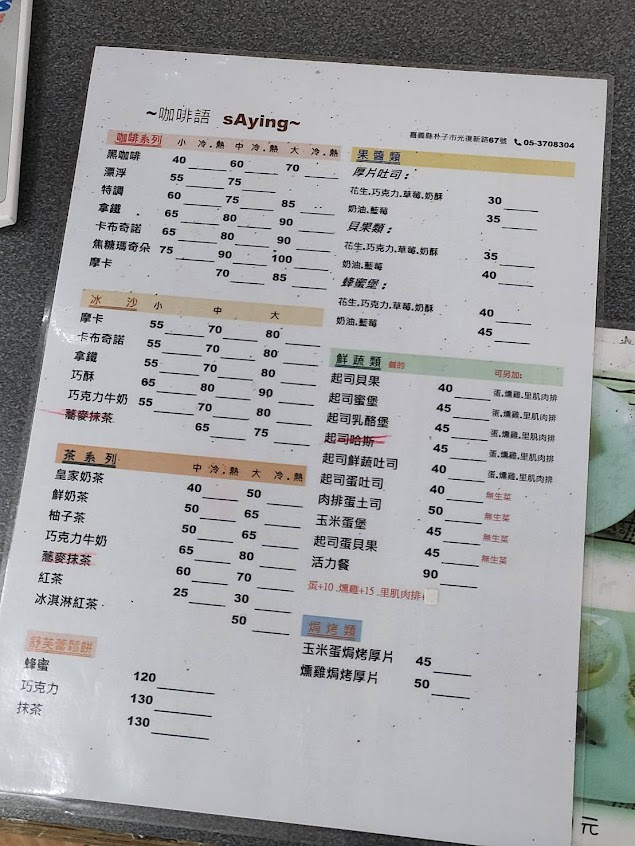 ~咖啡語 sAying~
嘉義縣朴子市光復新路67號 05-3708304
咖啡系列 小 冷.熱 中 冷.熱 大 冷.熱
黑咖啡 40 60 70
漂浮 55 75
特調 60 75 85
拿鐵 65 80 90
卡布奇諾 65 80 90
焦糖瑪奇朵 75 90 100
摩卡 70 85
冰 沙 小 中 大
摩卡 55 70 80
卡布奇諾 55 70 80
拿鐵 55 70 80
巧酥 65 80 90
巧克力牛奶 55 70 80
蕎麥抹茶 65 75
茶系列 中 冷.熱 大 冷.熱
皇家奶茶 40 50
鮮奶茶 50 65
柚子茶 50 65
巧克力牛奶 65 80
蕎麥抹茶 60 70
紅茶 25 30
冰淇淋紅茶 50
舒芙蕾鬆餅
蜂蜜 120
巧克力 130
抹茶 130
果醬類
厚片吐司：
花生.巧克力.草莓.奶酥 30
奶油.藍莓 35
貝果類：
花生.巧克力.草莓.奶酥 35
奶油.藍莓 40
蜂蜜堡：
花生.巧克力.草莓.奶酥 40
奶油.藍莓 45
鮮蔬類 鹹的 可另加:
起司貝果 40 蛋.燻雞.里肌肉排
起司蜜堡 45 蛋.燻雞.里肌肉排
起司乳酪堡 45 蛋.燻雞.里肌肉排
起司哈斯 45 蛋.燻雞.里肌肉排
起司鮮蔬吐司 40 蛋.燻雞.里肌肉排
起司蛋吐司 40 無生菜
肉排蛋土司 50
玉米蛋堡 45 無生菜
起司蛋貝果 45 無生菜
活力餐 90
蛋+10 .燻雞+15 .里肌肉排+
焗烤類
玉米蛋焗烤厚片 45
燻雞焗烤厚片 50
元